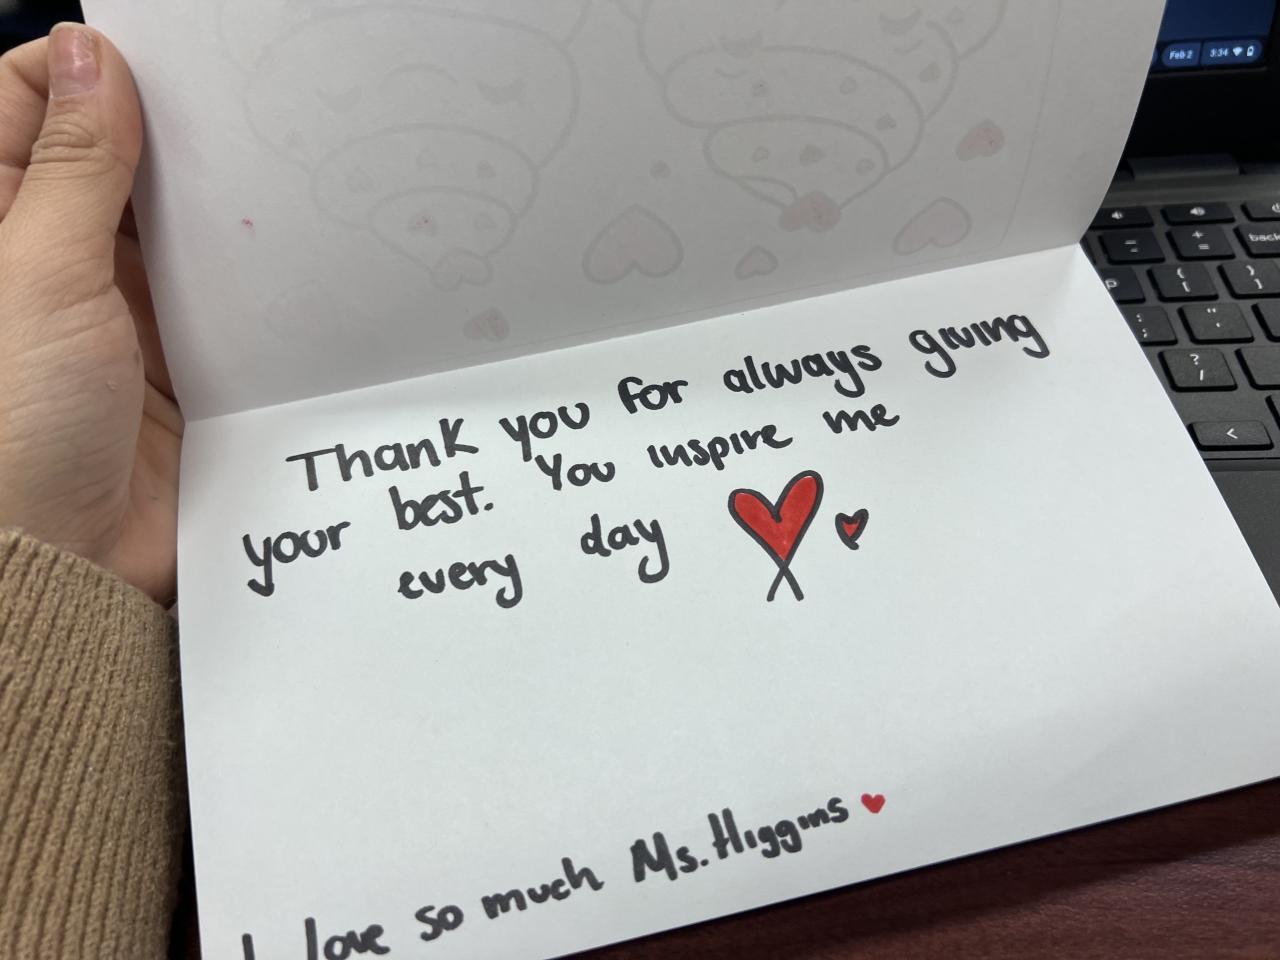 Feb 2 3:34
+
=
back
P
{
[
}
]
:
;
"
'
?
/
<
Thank you for always giving
your best. You inspire me
every day
I love so much Ms. Higgins